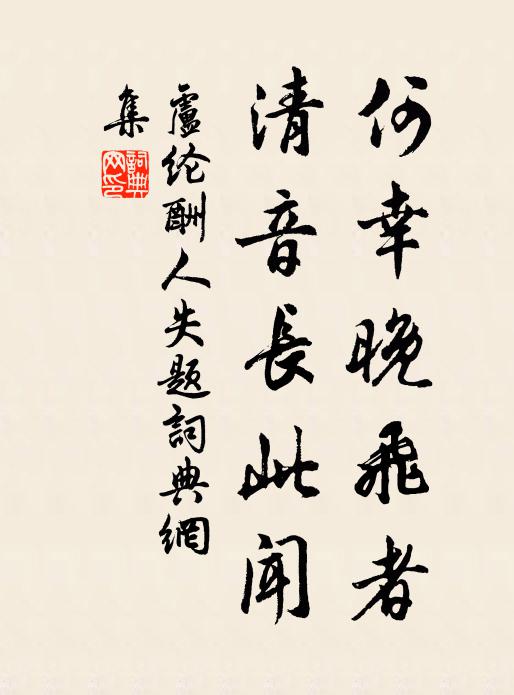 何幸晚飛者
清音長此聞
盧纶酬人失題詞典網
集
詞典
网印